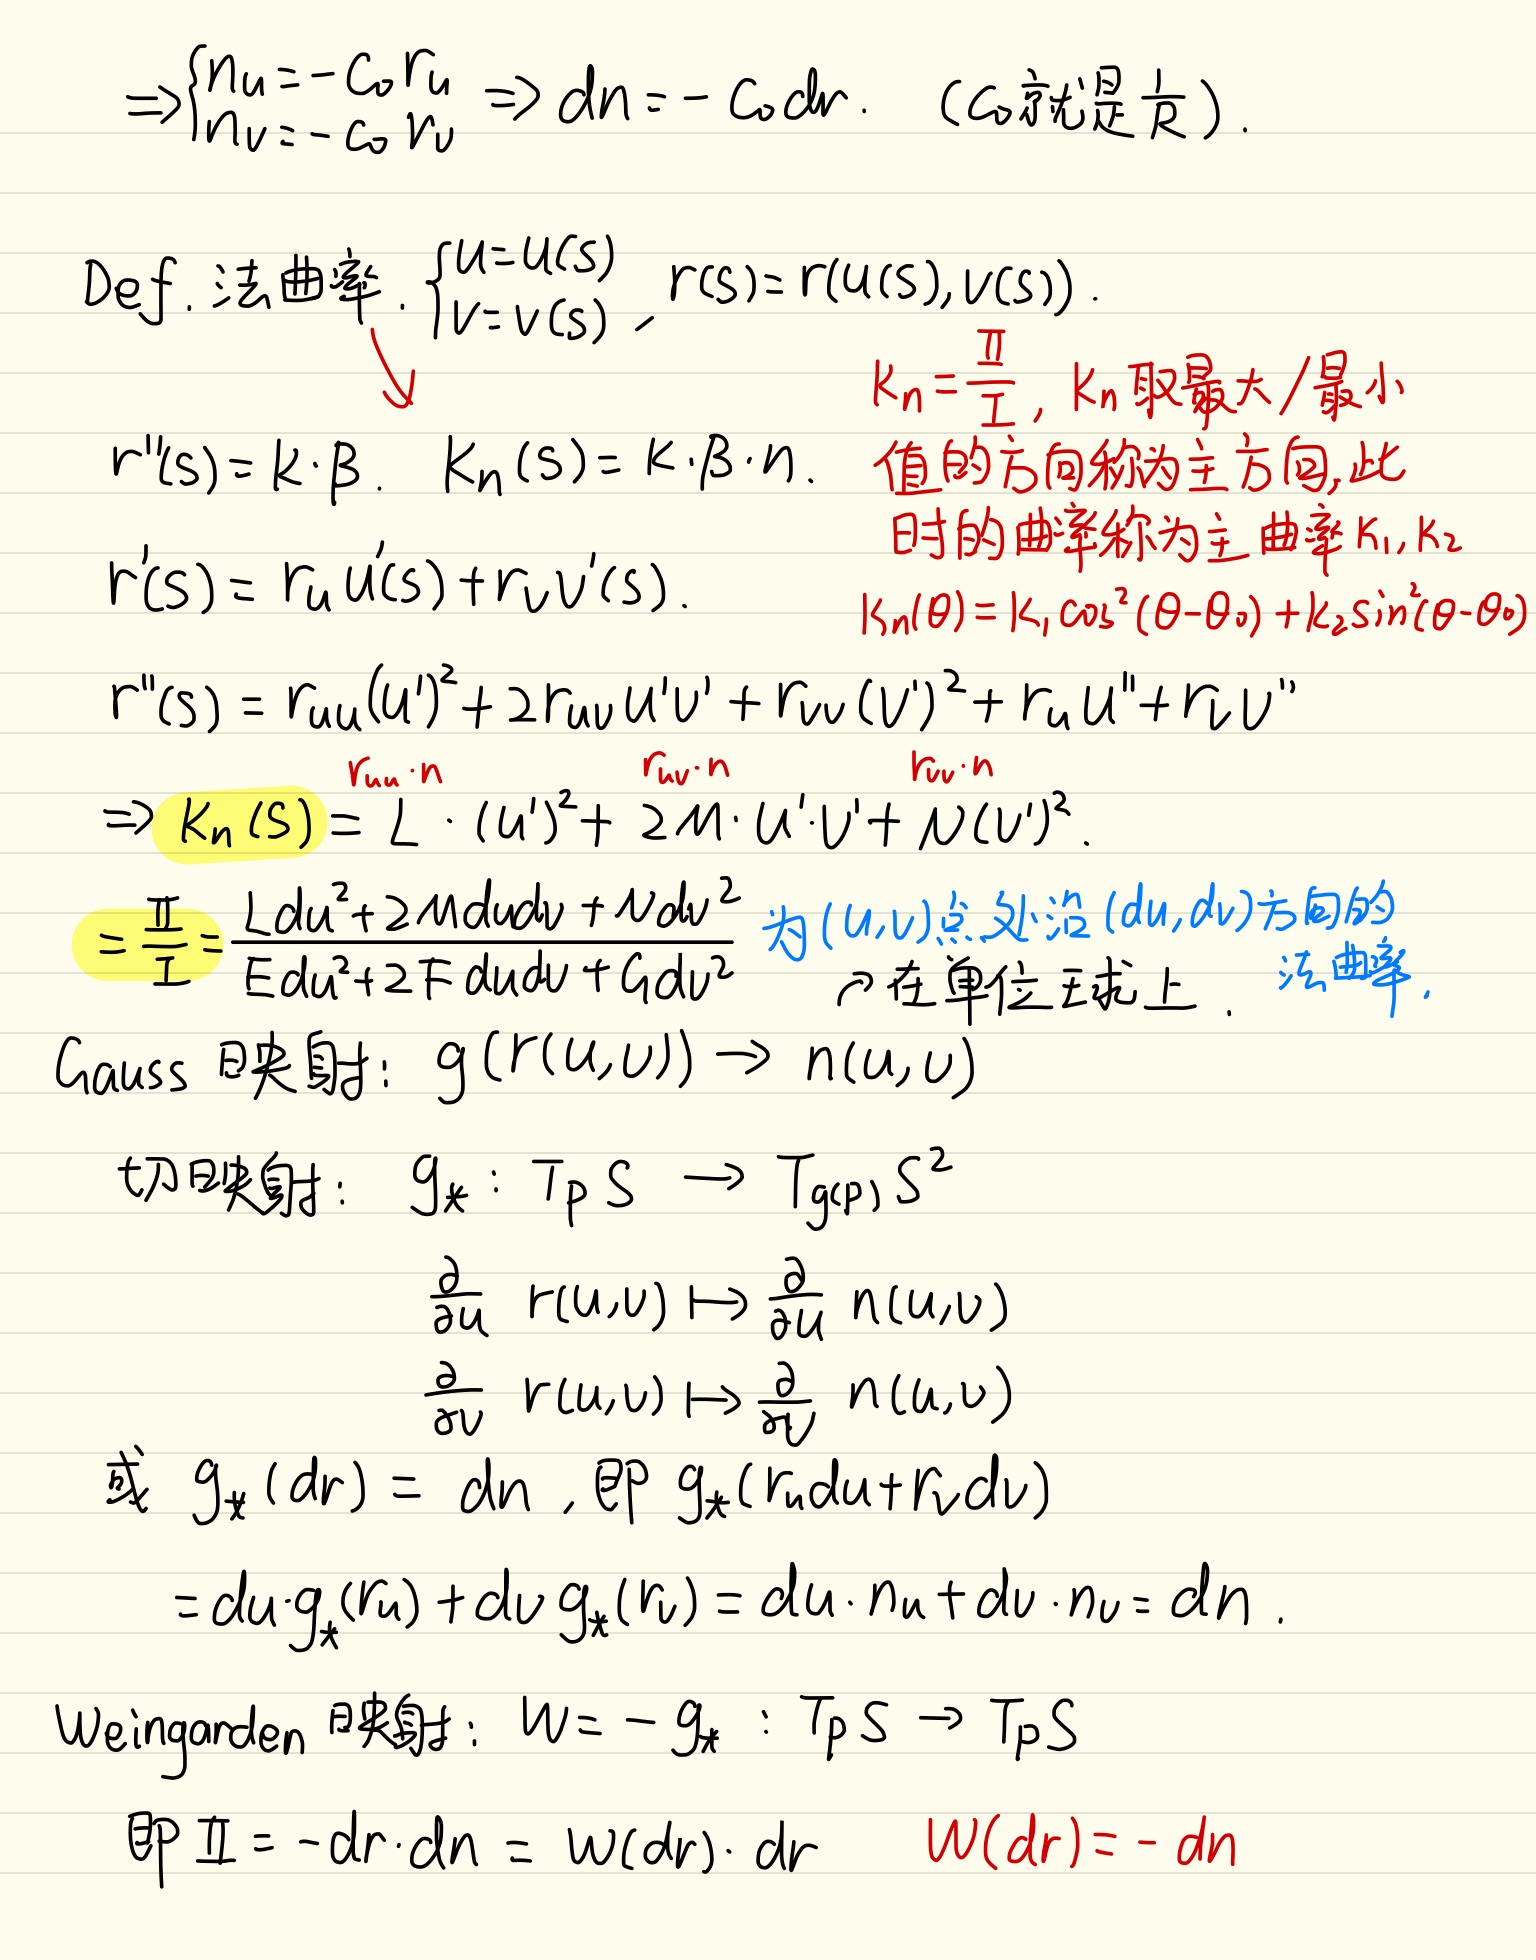 ⇒{n_u = -c₀ r_u
n_v = -c₀ r_v ⇒ dn = -c₀dr. (c₀就是 1/R).
Def. 法曲率. {u = u(s)
v = v(s), r(s) = r(u(s), v(s)).
κ_n = Ⅱ/Ⅰ, κ_n 取最大/最小
值的方向称为主方向,此
时的曲率称为主曲率 κ₁, κ₂
κ_n(θ) = κ₁cos²(θ-θ₀) + κ₂sin²(θ-θ₀)
r''(s) = κ·β. κ_n(s) = κ·β·n.
r'(s) = r_u u'(s) + r_v v'(s).
r''(s) = r_uu(u')² + 2r_uv u'v' + r_vv(v')² + r_u u'' + r_v v''
r_uu·n r_uv·n r_vv·n
⇒ κ_n(s) = L·(u')² + 2M·u'·v' + N(v')².
= Ⅱ/Ⅰ = (Ldu² + 2Mdudv + Ndv²)/(Edu² + 2Fdudv + Gdv²) 为(u,v)点处沿(du,dv)方向的
法曲率.
↗在单位球上.
Gauss 映射: g(r(u,v)) → n(u,v)
切映射: g_* : T_p S → T_g(p) S²
∂/∂u r(u,v) ↦ ∂/∂u n(u,v)
∂/∂v r(u,v) ↦ ∂/∂v n(u,v)
或 g_*(dr) = dn, 即 g_*(r_u du + r_v dv)
= du·g_*(r_u) + dv g_*(r_v) = du·n_u + dv·n_v = dn.
Weingarden 映射: W = -g_* : T_p S → T_p S
即 Ⅱ = -dr·dn = W(dr)·dr W(dr) = -dn